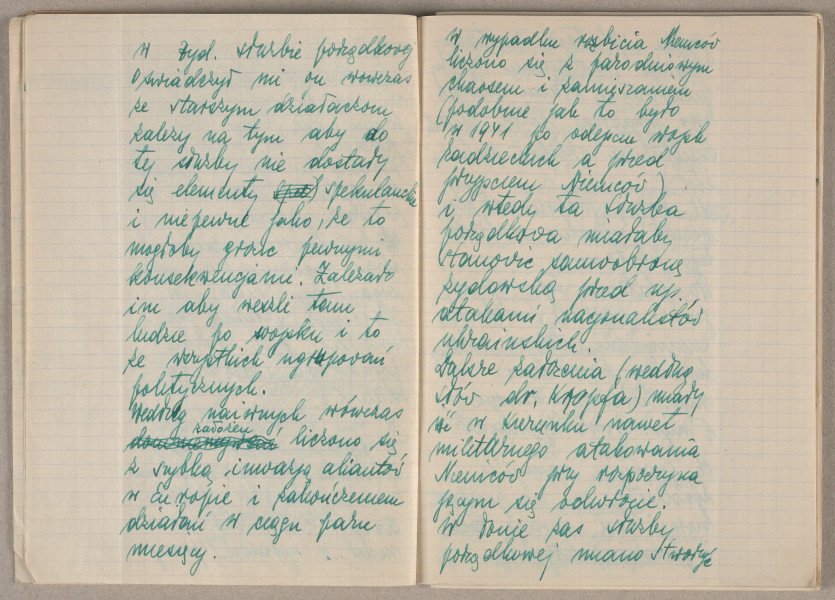 w żyd. służbie porządkowej
oświadczył mi on wówczas
że starszym działaczom
zależy na tym aby do
tej służby nie dostały
się elementy spekulanckie
i niepewne jako, że to
mogłoby grozić pewnymi
konsekwencjami. Zależało
im aby weszli tam
ludzie po wojsku i to
że wszystkich ugrupowań
politycznych.
Według naiwnych wówczas
założeń liczono się
z szybką inwazją aliantów
w Europie i zakończeniem
działań w ciągu paru
miesięcy.
w wypadku rozbicia Niemców
liczono się z parodniowym
chaosem i zamieszaniem
(podobnie jak to było
w 1941 po odejściu wojsk
radzieckich a przed
przyjściem Niemców)
i wtedy ta służba
porządkowa miałaby
stanowić samoobronę
żydowską przed np.
atakami nacjonalistów
ukraińskich.
Dalsze założenia (według
słów dr. Kropfa) miały
iść w kierunku nawet
militarnego atakowania
Niemców przy rozpoczyna
jącym się odwrocie.
W łonie zaś służby
porządkowej miano stworzyć